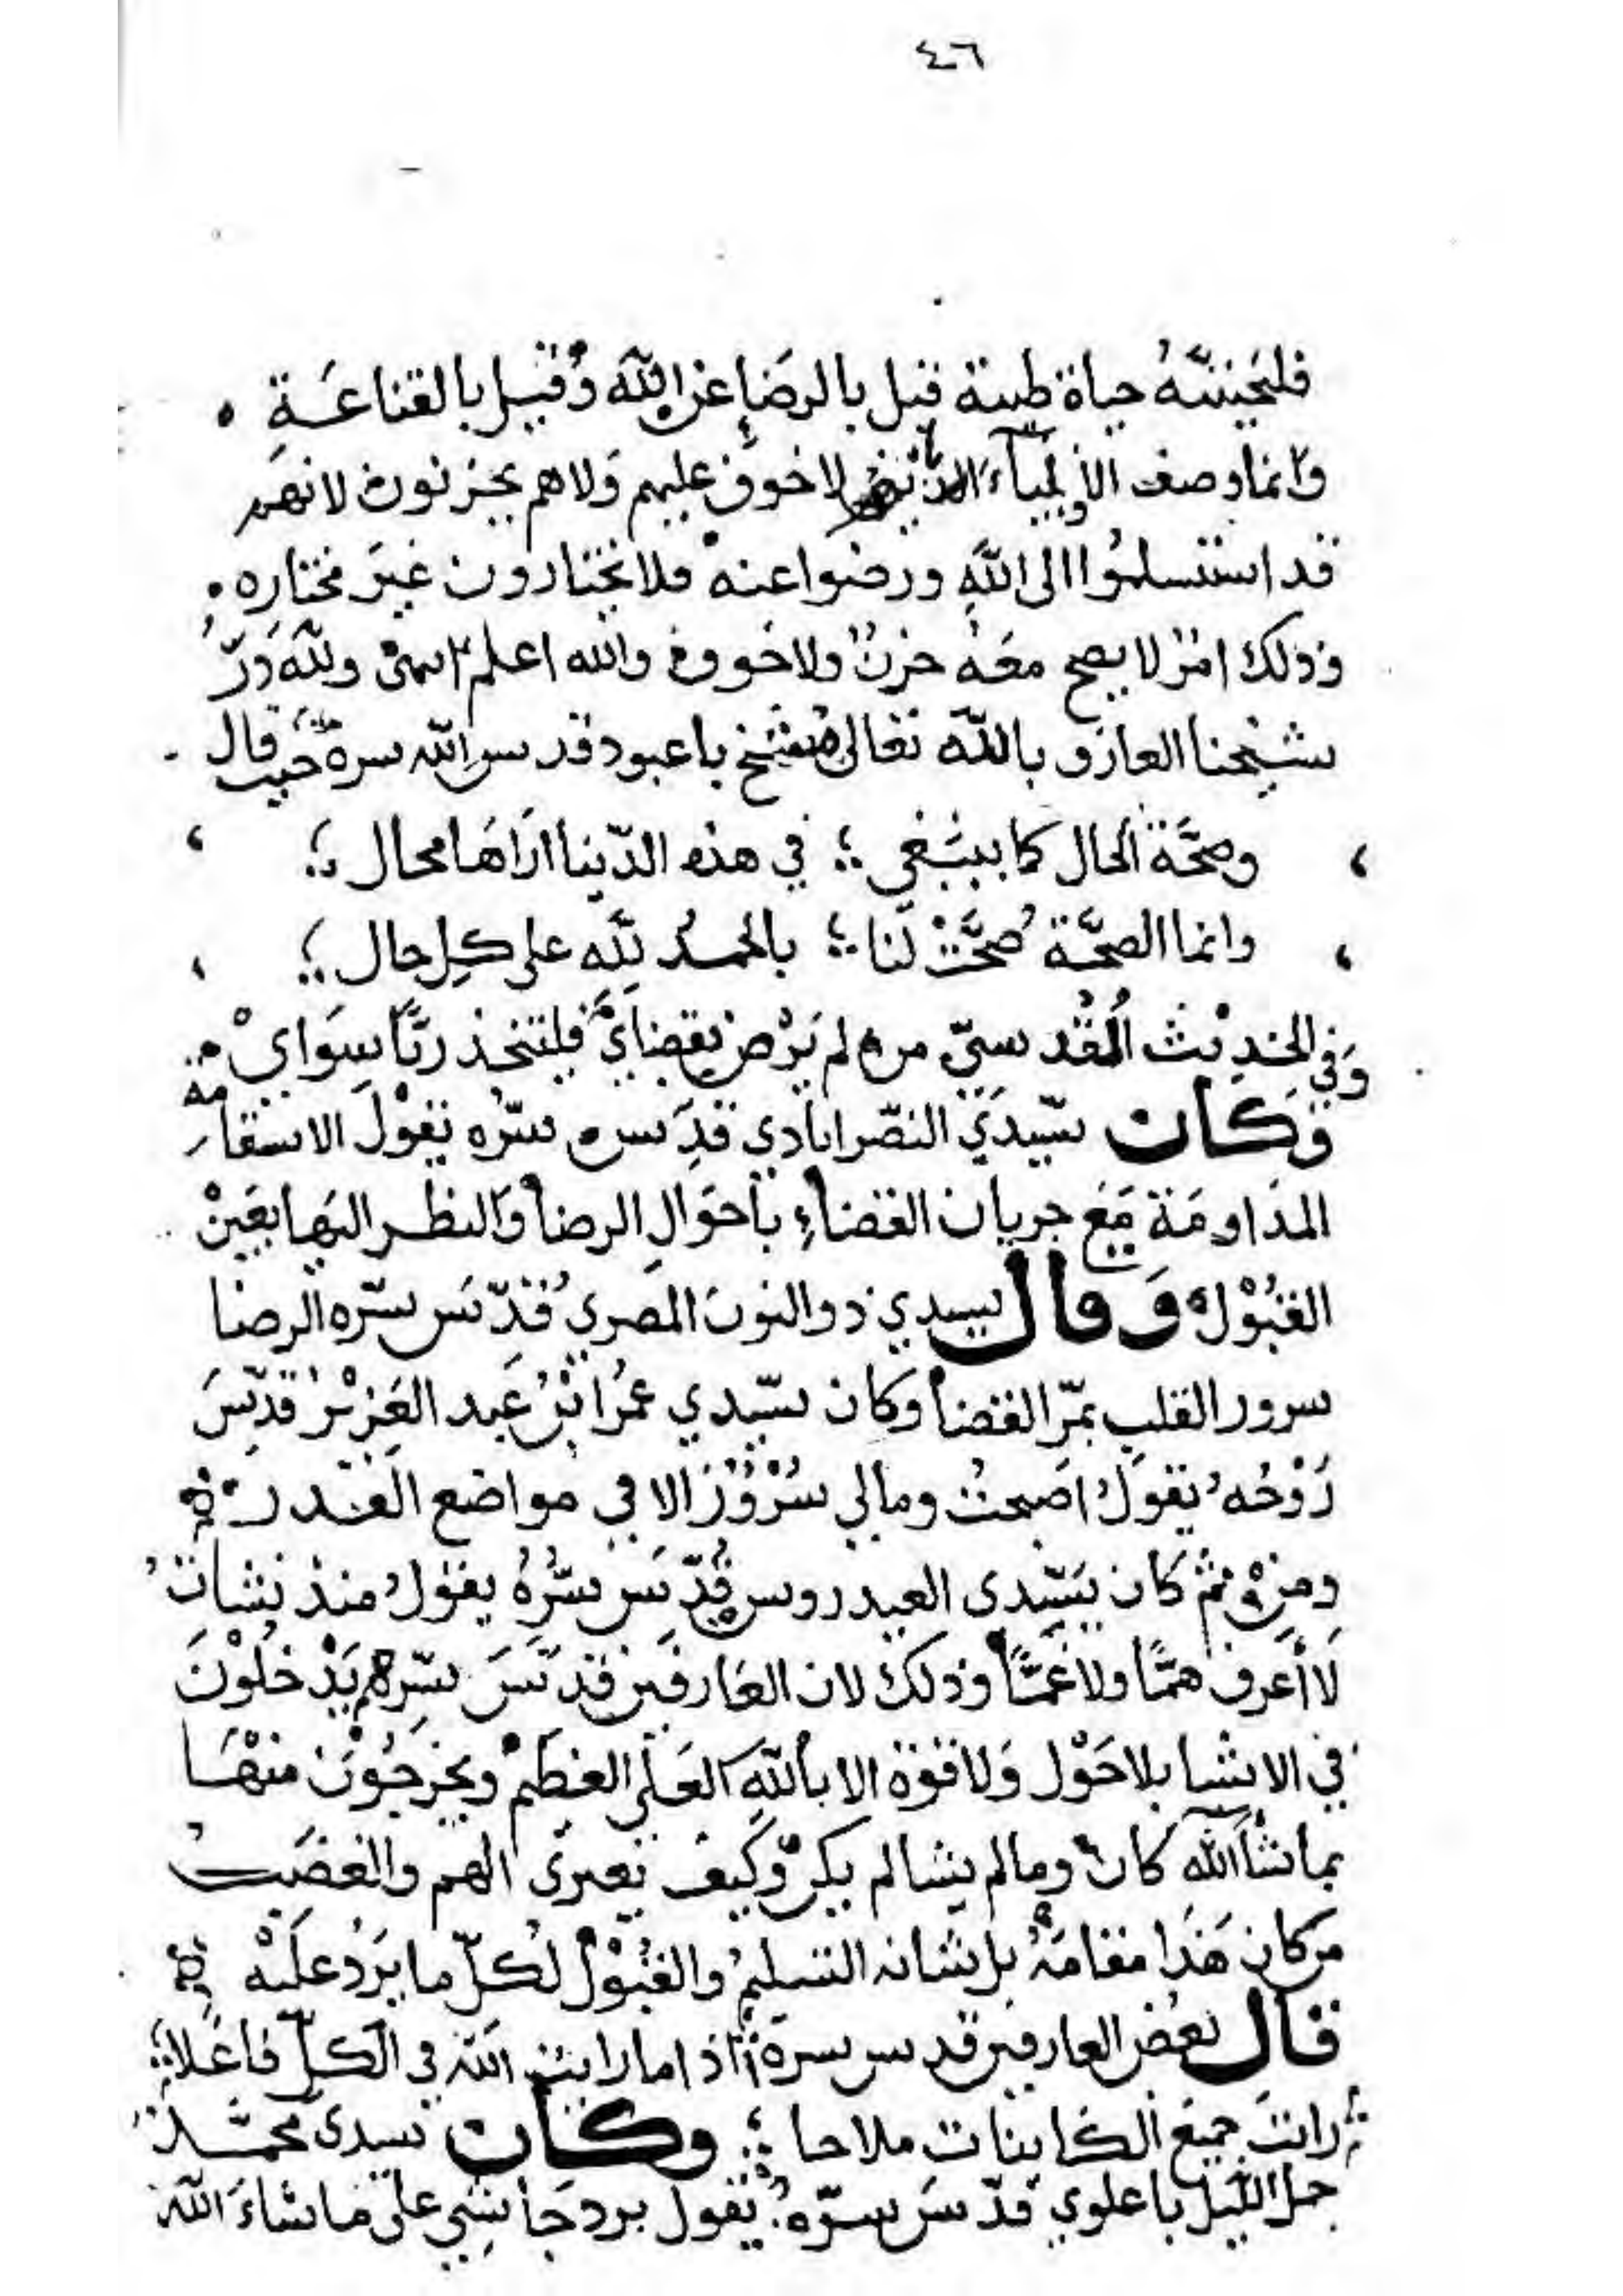 ٤٦
فلنحيينه حياة طيبة قيل بالرضا عن الله وقيل بالقناعة
وانما وصف الأولياء لا خوف عليهم ولا هم يحزنون لانهم
قد استسلموا الى الله ورضوا عنه فلا يختارون غير مختاره
وذلك امر لا يصح معه حزن ولا خوف والله اعلم انتهى ولله در
شيخنا العارف بالله تعالى باعبود قدس الله سره حيث قال
وصحة الحال كما ينبغي ؛ في هذه الدنيا اراها محال ؛
وانما الصحة صحت لنا ؛ بالحمد لله على كل حال ؛
وفي الحديث القدسي من لم يرض بقضاي فليتخذ ربا سواي
وكان سيدي النصراباذي قدس سره يقول الاستقامة
المداومة مع جريان القضاء باحوال الرضا والنظر اليها بعين
القبول وقال سيدي ذو النون المصري قدس سره الرضا
سرور القلب بمر القضا وكان سيدي عمر ابن عبد العزيز قدس
روحه يقول اصبحت ومالي سرور الا في مواضع القدر
ومن ثم كان سيدي العيدروس قدس سره يقول منذ نشات
لا أعرف هما ولا غما وذلك لان العارفين قدس سرهم يدخلون
في الاشيا بلا حول ولا قوة الا بالله العلي العظيم ويخرجون منها
بما شاء الله كان وما لم يشا لم يكن وكيف يعترى الهم والغضب
من كان هذا مقامه بل شانه التسليم والقبول لكل ما يرد عليه
قال بعض العارفين قدس سره اذا ما رايت الله في الكل فاعلا
رايت جميع الكاينات ملاحا ؛ وكان سيدى محمد
جمل الليل باعلوي قدس سره يقول برد جأشي على ما شاء الله